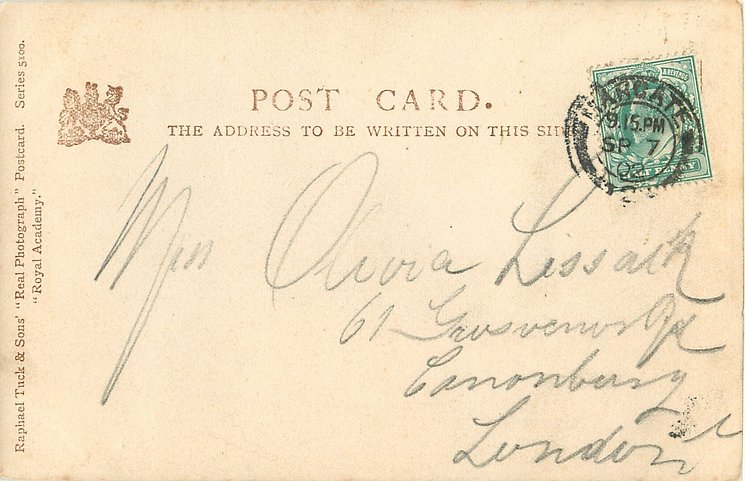 POST CARD.
THE ADDRESS TO BE WRITTEN ON THIS SID
MARGATE
9.15.PM
SP 7
REVENUE
HALF PENNY
Miss Olivia Lissack
61 Grosvenor Rd
Canonbury
London
Raphael Tuck & Sons' "Real Photograph" Postcard. Series 5100.
"Royal Academy."